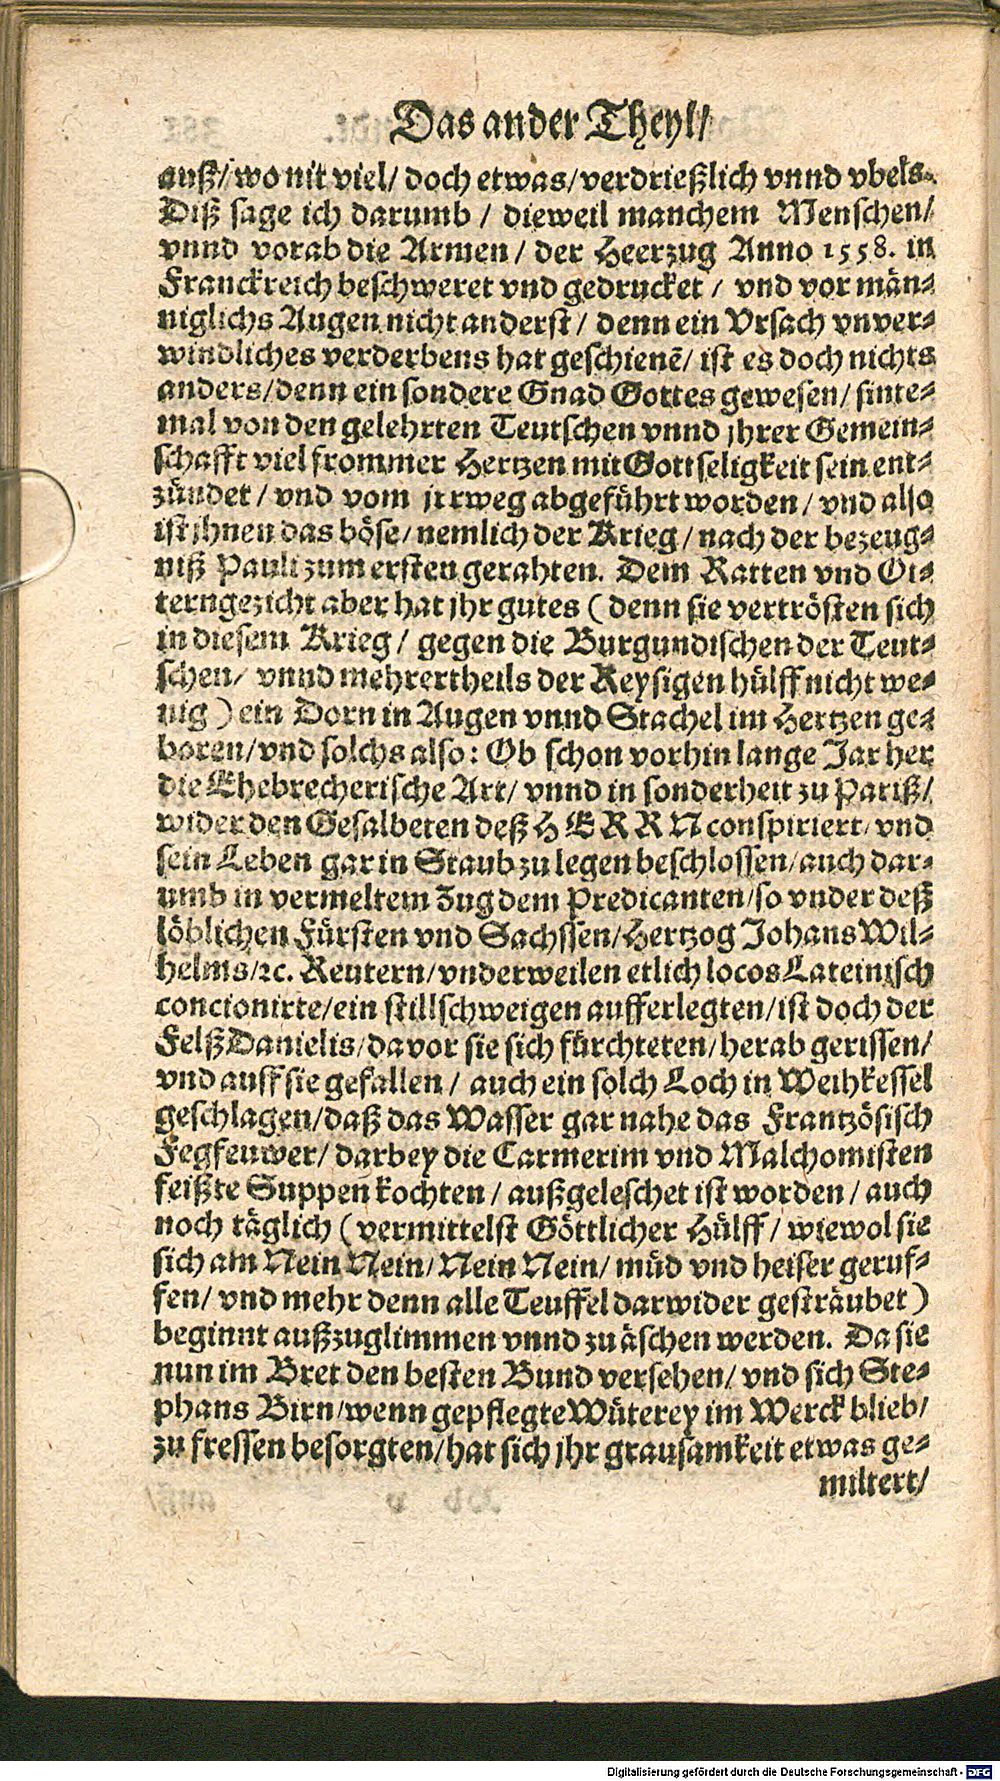 Das ander Theyl/
auß/ wo nit viel/ doch etwas/ verdrießlich vnnd vbels.
Diß sage ich darumb / dieweil manchem Menschen/
vnnd vorab die Armen / der Heerzug Anno 1558. in
Franckreich beschweret vnd gedrucket / vnd vor män-
niglichs Augen nicht anderst / denn ein Vrsach vnver-
windliches verderbens hat geschienẽ/ ist es doch nichts
anders/ denn ein sondere Gnad Gottes gewesen/ sinte-
mal von den gelehrten Teutschen vnnd jhrer Gemein-
schafft viel frommer Hertzen mit Gottseligkeit sein ent-
zündet / vnd vom jrrweg abgeführt worden / vnd also
ist jhnen das böse/ nemlich der Krieg / nach der bezeug-
niß Pauli zum ersten gerahten. Dem Ratten vnd Ot-
terngezicht aber hat jhr gutes ( denn sie vertrösten sich
in diesem Krieg / gegen die Burgundischen der Teut-
schen/ vnnd mehrertheils der Reysigen hülff nicht we-
nig ) ein Dorn in Augen vnnd Stachel im Hertzen ge-
boren/ vnd solchs also: Ob schon vorhin lange Jar her
die Ehebrecherische Art/ vnnd in sonderheit zu Pariß/
wider den Gesalbeten deß HERRN conspiriert/ vnd
sein Leben gar in Staub zu legen beschlossen/ auch dar-
umb in vermeltem Zug dem Predicanten/ so vnder deß
löblichen Fürsten vnd Sachssen/ Hertzog Johans Wil-
helms/ ꝛc. Reutern/ vnderweilen etlich locos Lateinisch
concionirte/ ein stillschweigen aufferlegten/ ist doch der
Felß Danielis/ davor sie sich fürchteten/ herab gerissen/
vnd auff sie gefallen / auch ein solch Loch in Weihkessel
geschlagen/ daß das Wasser gar nahe das Frantzösisch
Fegfeuwer/ darbey die Carmerim vnd Malchomisten
feißte Suppen kochten / außgeleschet ist worden / auch
noch täglich ( vermittelst Göttlicher Hülff / wiewol sie
sich am Nein Nein/ Nein Nein/ müd vnd heiser geruf-
fen/ vnd mehr denn alle Teuffel darwider gesträubet )
beginnt außzuglimmen vnnd zu äschen werden. Da sie
nun im Bret den besten Bund versehen/ vnd sich Ste-
phans Birn/ wenn gepflegte Wüterey im Werck blieb/
zu fressen besorgten/ hat sich jhr grausamkeit etwas ge-
miltert/
Digitalisierung gefördert durch die Deutsche Forschungsgemeinschaft - DFG